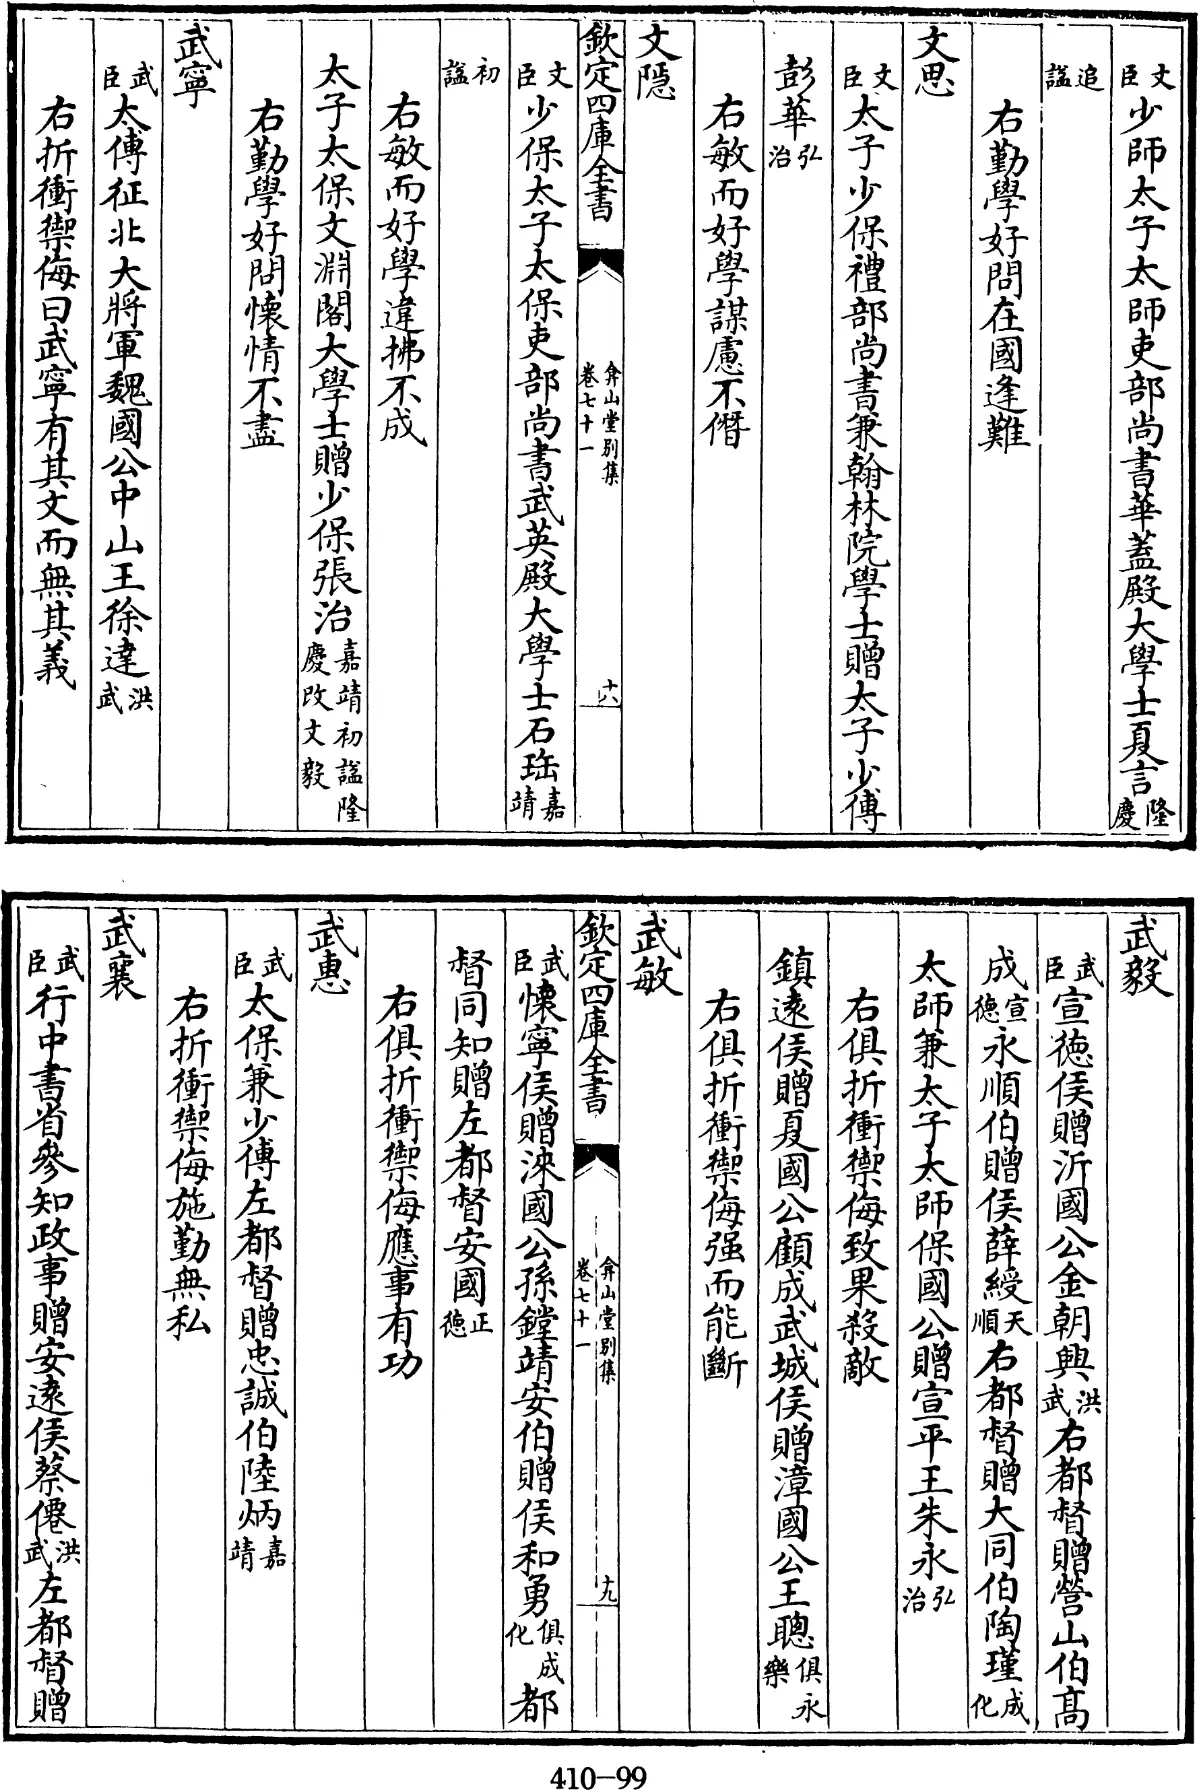 文臣少師太子太師吏部尚書華蓋殿大學士夏言隆慶
追諡
右勤學好問在國逢難
文思
文臣太子少保禮部尚書兼翰林院學士贈太子少傅
彭華弘治
右敏而好學謀慮不僭
文隱
欽定四庫全書 弇山堂別集 卷七十一 十八
文臣少保太子太保吏部尚書武英殿大學士石珤嘉靖
初諡
右敏而好學違拂不成
太子太保文淵閣大學士贈少保張治嘉靖初諡隆慶改文毅
右勤學好問懷情不盡
武寧
武臣太傅征北大將軍魏國公中山王徐達洪武
右折衝禦侮曰武寧有其文而無其義
武毅
武臣宣德侯贈沂國公金朝興洪武右都督贈營山伯高
成宣德永順伯贈侯薛綬天順右都督贈大同伯陶瑾成化
太師兼太子太師保國公贈宣平王朱永弘治
右俱折衝禦侮致果殺敵
鎮遠侯贈夏國公顧成武城侯贈漳國公王聰俱永樂
右俱折衝禦侮强而能斷
武敏
欽定四庫全書 弇山堂別集 卷七十一 十九
武臣懷寧侯贈淶國公孫鏜靖安伯贈侯和勇俱成化都
督同知贈左都督安國正德
右俱折衝禦侮應事有功
武惠
武臣太保兼少傅左都督贈忠誠伯陸炳嘉靖
右折衝禦侮施勤無私
武襄
武臣行中書省參知政事贈安遠侯蔡僊洪武左都督贈
410-99